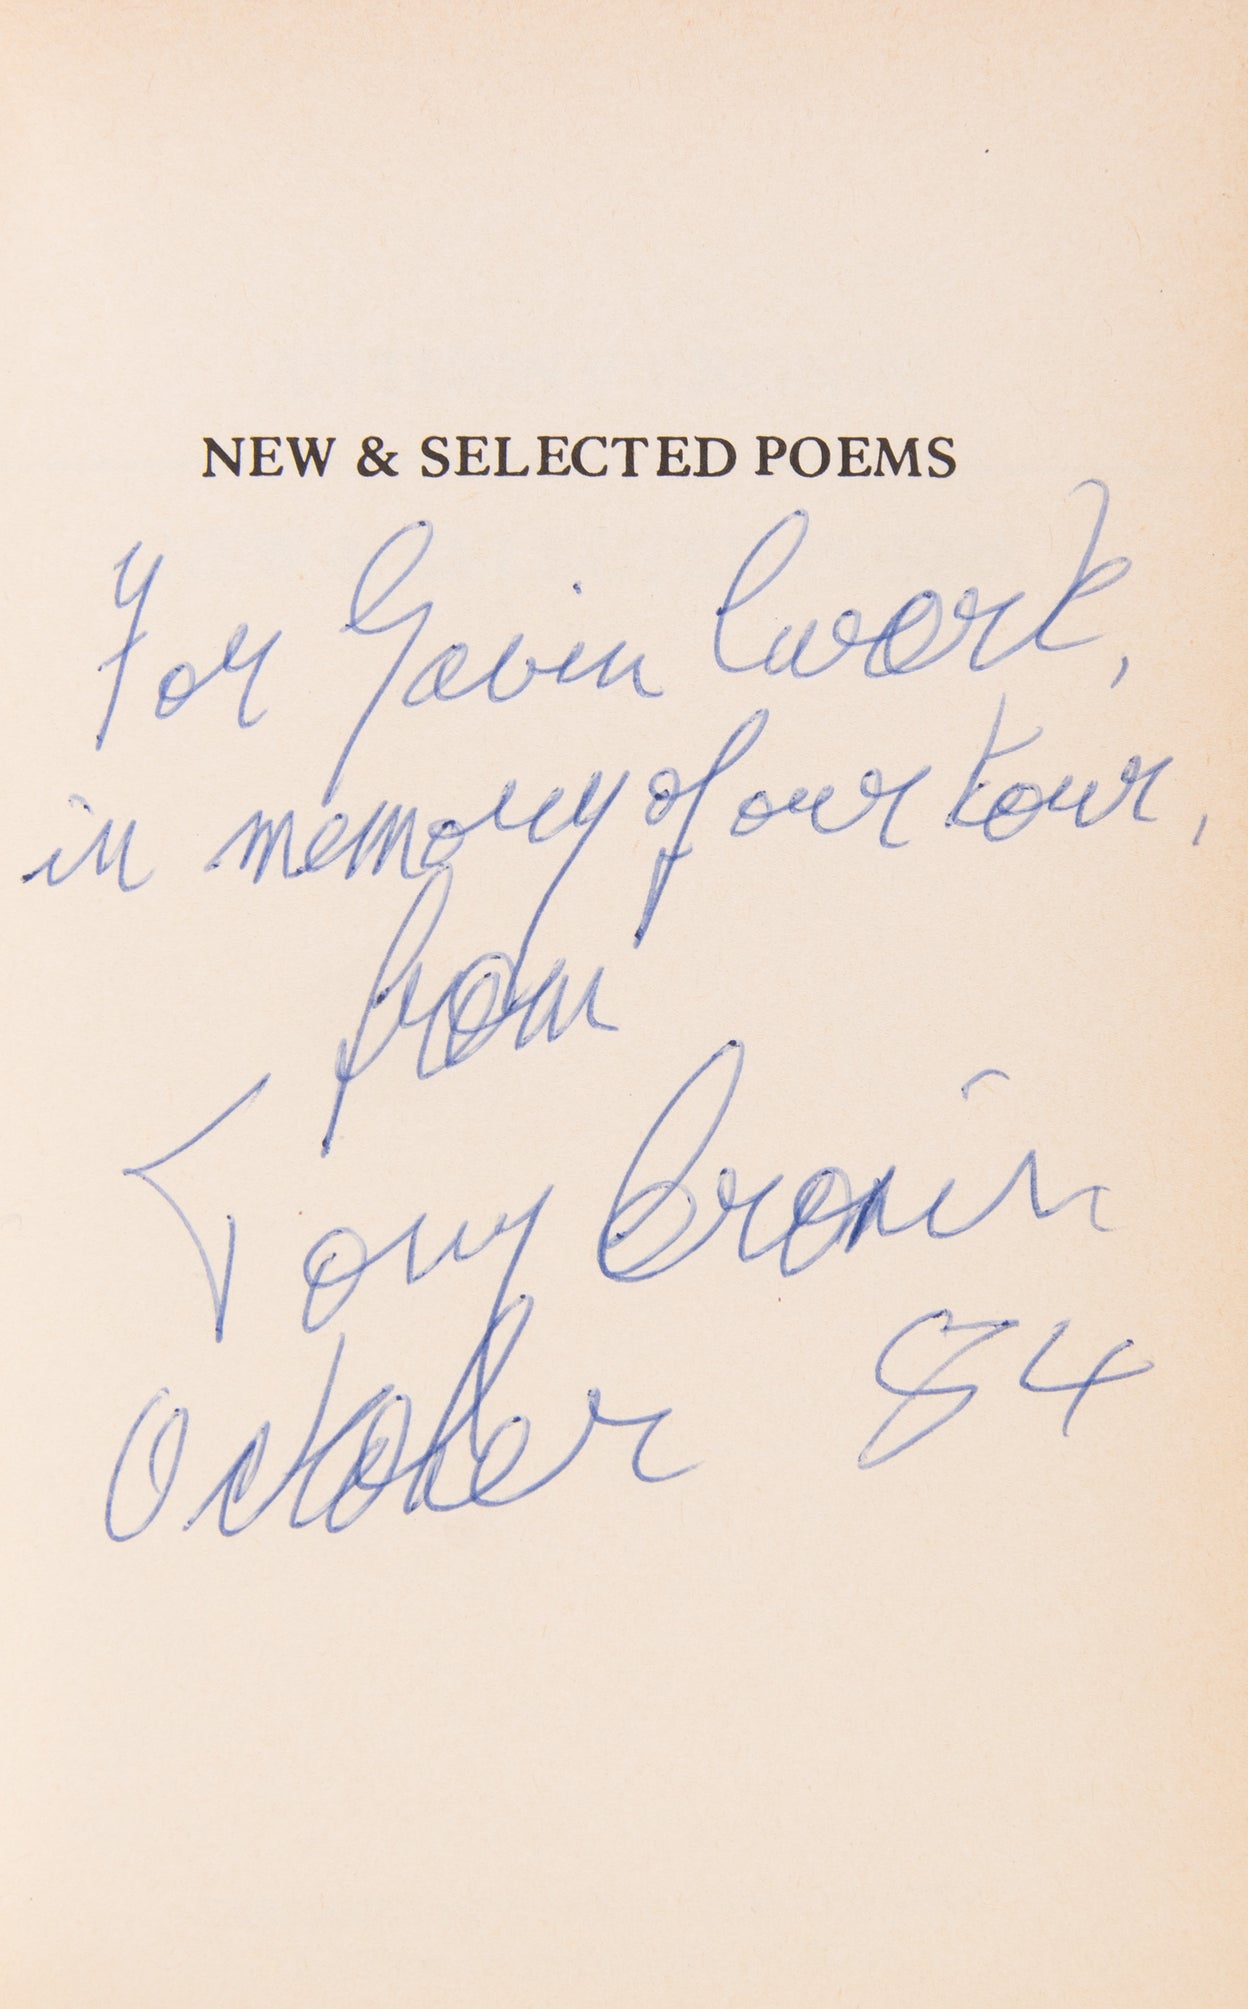 NEW & SELECTED POEMS
For Gavin Ewart,
in memory of our tour,
from
Tony Cronin
October 84